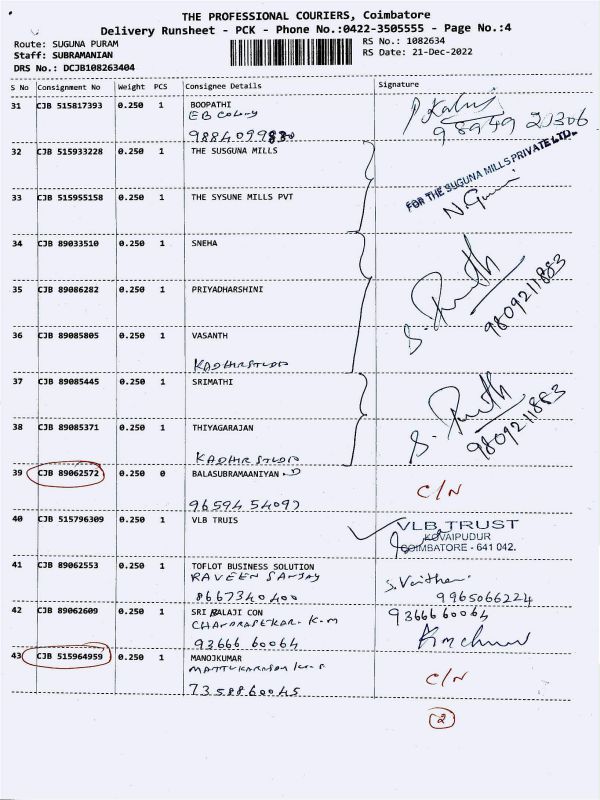 THE PROFESSIONAL COURIERS, Coimbatore
Delivery Runsheet - PCK - Phone No.:0422-3505555 - Page No.:4
Route: SUGUNA PURAM RS No.: 1082634
Staff: SUBRAMANIAN RS Date: 21-Dec-2022
DRS No.: DCJB108263404
S No Consignment No Weight PCS Consignee Details Signature
31 CJB 515817393 0.250 1 BOOPATHI
EB Colony
9884099830
98949 21306
32 CJB 515933228 0.250 1 THE SUSGUNA MILLS
FOR THE SUGUNA MILLS PRIVATE LTD.
33 CJB 515955158 0.250 1 THE SYSUNE MILLS PVT
34 CJB 89033510 0.250 1 SNEHA
35 CJB 89086282 0.250 1 PRIYADHARSHINI
9809211883
36 CJB 89085805 0.250 1 VASANTH
KADHIR STUDIO
37 CJB 89085445 0.250 1 SRIMATHI
38 CJB 89085371 0.250 1 THIYAGARAJAN
9809211883
KADHIR STUDIO
39 CJB 89062572 0.250 0 BALASUBRAMAANIYAN
C/N
40 CJB 515796309 0.250 1 VLB TRUIS
VLB TRUST
KOVAIPUDUR
COIMBATORE - 641 042.
41 CJB 89062553 0.250 1 TOFLOT BUSINESS SOLUTION
RAVEEN SANJAY
8667340400 9965066224
42 CJB 89062609 0.250 1 SRI BALAJI CON 9366660064
CHANDRASEKAR. K.M
93666 60064
43 CJB 515964959 0.250 1 MANOJKUMAR
C/N
7358860045
2